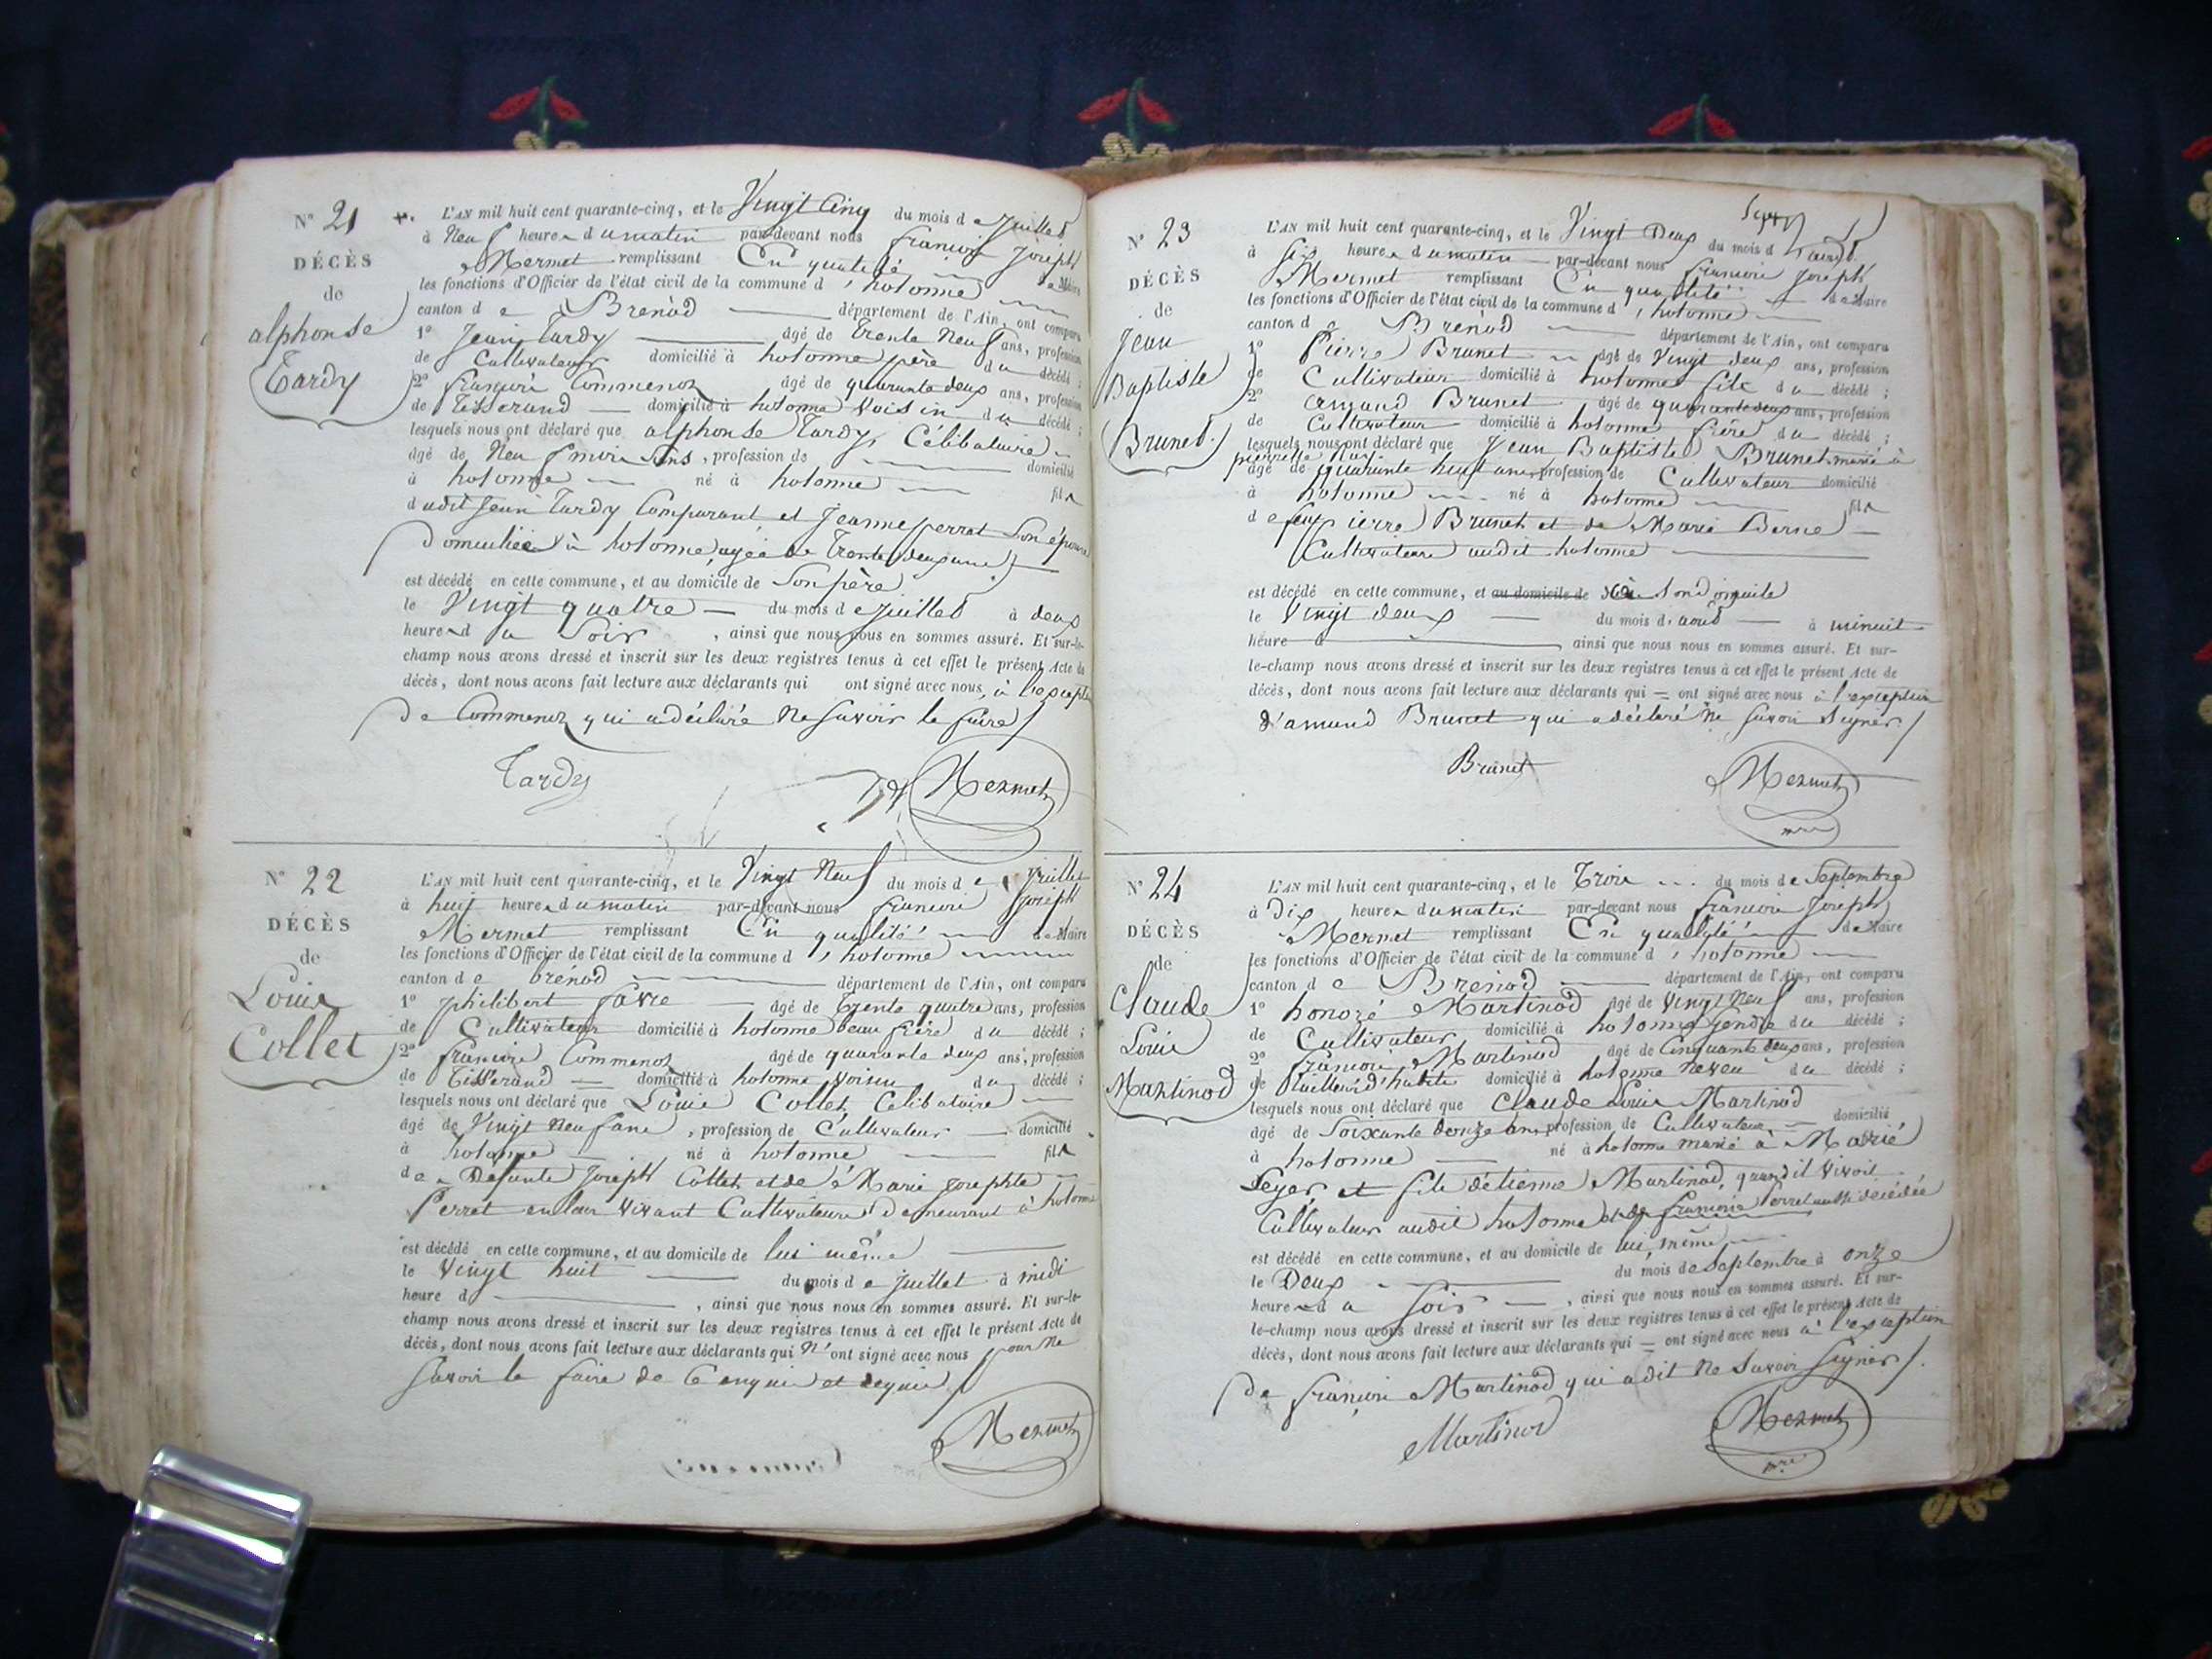 N° 21
DÉCÈS
de
alphonse
Tardy
L'AN mil huit cent quarante-cinq, et le Vingt Cinq du mois de Juillet
à Neuf heures du matin par-devant nous françois Joseph
Mermet remplissant En qualité de Maire
les fonctions d'Officier de l'état civil de la commune d'hotonne
canton de Brenod département de l'Ain, ont comparu
1° Jean Tardy âgé de trente Neuf ans, profession
de Cultivateur domicilié à hotonne père du décédé ;
2° françois Commenoz âgé de quarante deux ans, profession
de Tisserand domicilié à hotonne Voisin du décédé ;
lesquels nous ont déclaré que alphonse Tardy, Célibataire
âgé de Neuf mois, profession de domicilié
à hotonne né à hotonne fils
dudit Jean Tardy Comparant et Jeanne perret Son épouse
Domiciliée à hotonne, agée de Trente deux ans
est décédé en cette commune, et au domicile de Son père
le Vingt quatre du mois de Juillet à deux
heures du Soir, ainsi que nous nous en sommes assuré. Et sur-le-
champ nous avons dressé et inscrit sur les deux registres tenus à cet effet le présent Acte de
décès, dont nous avons fait lecture aux déclarants qui ont signé avec nous, à l'exception
de Commenoz qui a déclaré Ne Savoir le faire
Tardy
Mermet
N° 22
DÉCÈS
de
Louis
Collet
L'AN mil huit cent quarante-cinq, et le Vingt Neuf du mois de Juillet
à huit heures du matin par-devant nous françois Joseph
Mermet remplissant En qualité de Maire
les fonctions d'Officier de l'état civil de la commune d'hotonne
canton de brénod département de l'Ain, ont comparu
1° philibert favre âgé de Trente quatre ans, profession
de Cultivateur domicilié à hotonne beau frère du décédé ;
2° françois Commenoz âgé de quarante deux ans, profession
de Tisserand domicilié à hotonne voisin du décédé ;
lesquels nous ont déclaré que Louis Collet, Célibataire
âgé de Vingt Neuf ans, profession de Cultivateur domicilié
à hotonne né à hotonne fils
de Defunts Joseph Collet et de Marie Josephte
Perret en leur vivant Cultivateurs Demeurant à hotonne
est décédé en cette commune, et au domicile de lui même
le Vingt huit du mois de Juillet à midi
heure d, ainsi que nous nous en sommes assuré. Et sur-le-
champ nous avons dressé et inscrit sur les deux registres tenus à cet effet le présent Acte de
décès, dont nous avons fait lecture aux déclarants qui N'ont signé avec nous pour Ne
Savoir le faire de Ce enquis et requis
Mermet
N° 23
DÉCÈS
de
Jean
Baptiste
Brunet.
L'AN mil huit cent quarante-cinq, et le Vingt Deux du mois d'août
à six heures du matin par-devant nous françois Joseph
Mermet remplissant En qualité de Maire
les fonctions d'Officier de l'état civil de la commune d'hotonne
canton de Brénod département de l'Ain, ont comparu
1° Pierre Brunet âgé de Vingt deux ans, profession
de Cultivateur domicilié à hotonne fils du décédé ;
2° amand Brunet âgé de quarante deux ans, profession
de Cultivateur domicilié à hotonne frère du décédé ;
lesquels nous ont déclaré que Jean Baptiste Brunet marié à
pierrette
âgé de quarante huit ans, profession de Cultivateur domicilié
à hotonne né à hotonne fils
de feu pierre Brunet et de Marie Berne
Cultivateurs audit hotonne
est décédé en cette commune, et au domicile de Son domicile
le Vingt deux du mois d'août à minuit
heure d ainsi que nous nous en sommes assuré. Et sur-
le-champ nous avons dressé et inscrit sur les deux registres tenus à cet effet le présent Acte de
décès, dont nous avons fait lecture aux déclarants qui ont signé avec nous à l'exception
d'amand Brunet qui a déclaré Ne Savoir Signer
Brunet
Mermet
mre
N° 24
DÉCÈS
de
Claude
Louis
Martinod
L'AN mil huit cent quarante-cinq, et le Trois du mois de Septembre
à Dix heures du matin par-devant nous françois Joseph
Mermet remplissant En qualité de Maire
les fonctions d'Officier de l'état civil de la commune d'hotonne
canton de Brénod département de l'Ain, ont comparu
1° honoré Martinod âgé de Vingt Neuf ans, profession
de Cultivateur domicilié à hotonne Gendre du décédé ;
2° françois Martinod âgé de Cinquante deux ans, profession
de tailleur d'habits domicilié à hotonne neveu du décédé ;
lesquels nous ont déclaré que Claude Louis Martinod
âgé de Soixante ans, profession de Cultivateur domicilié
à hotonne né à hotonne marié à Marie
Seyer et fils d'étienne Martinod, quand il vivoit
Cultivateur audit hotonne et de françoise Perret aussi décédée
est décédé en cette commune, et au domicile de lui même
le Deux du mois de Septembre à onze
heures du Soir, ainsi que nous nous en sommes assuré. Et sur-
le-champ nous avons dressé et inscrit sur les deux registres tenus à cet effet le présent Acte de
décès, dont nous avons fait lecture aux déclarants qui ont signé avec nous à l'exception
de françois Martinod qui a dit Ne Savoir Signer
Martinod
Mermet
mre